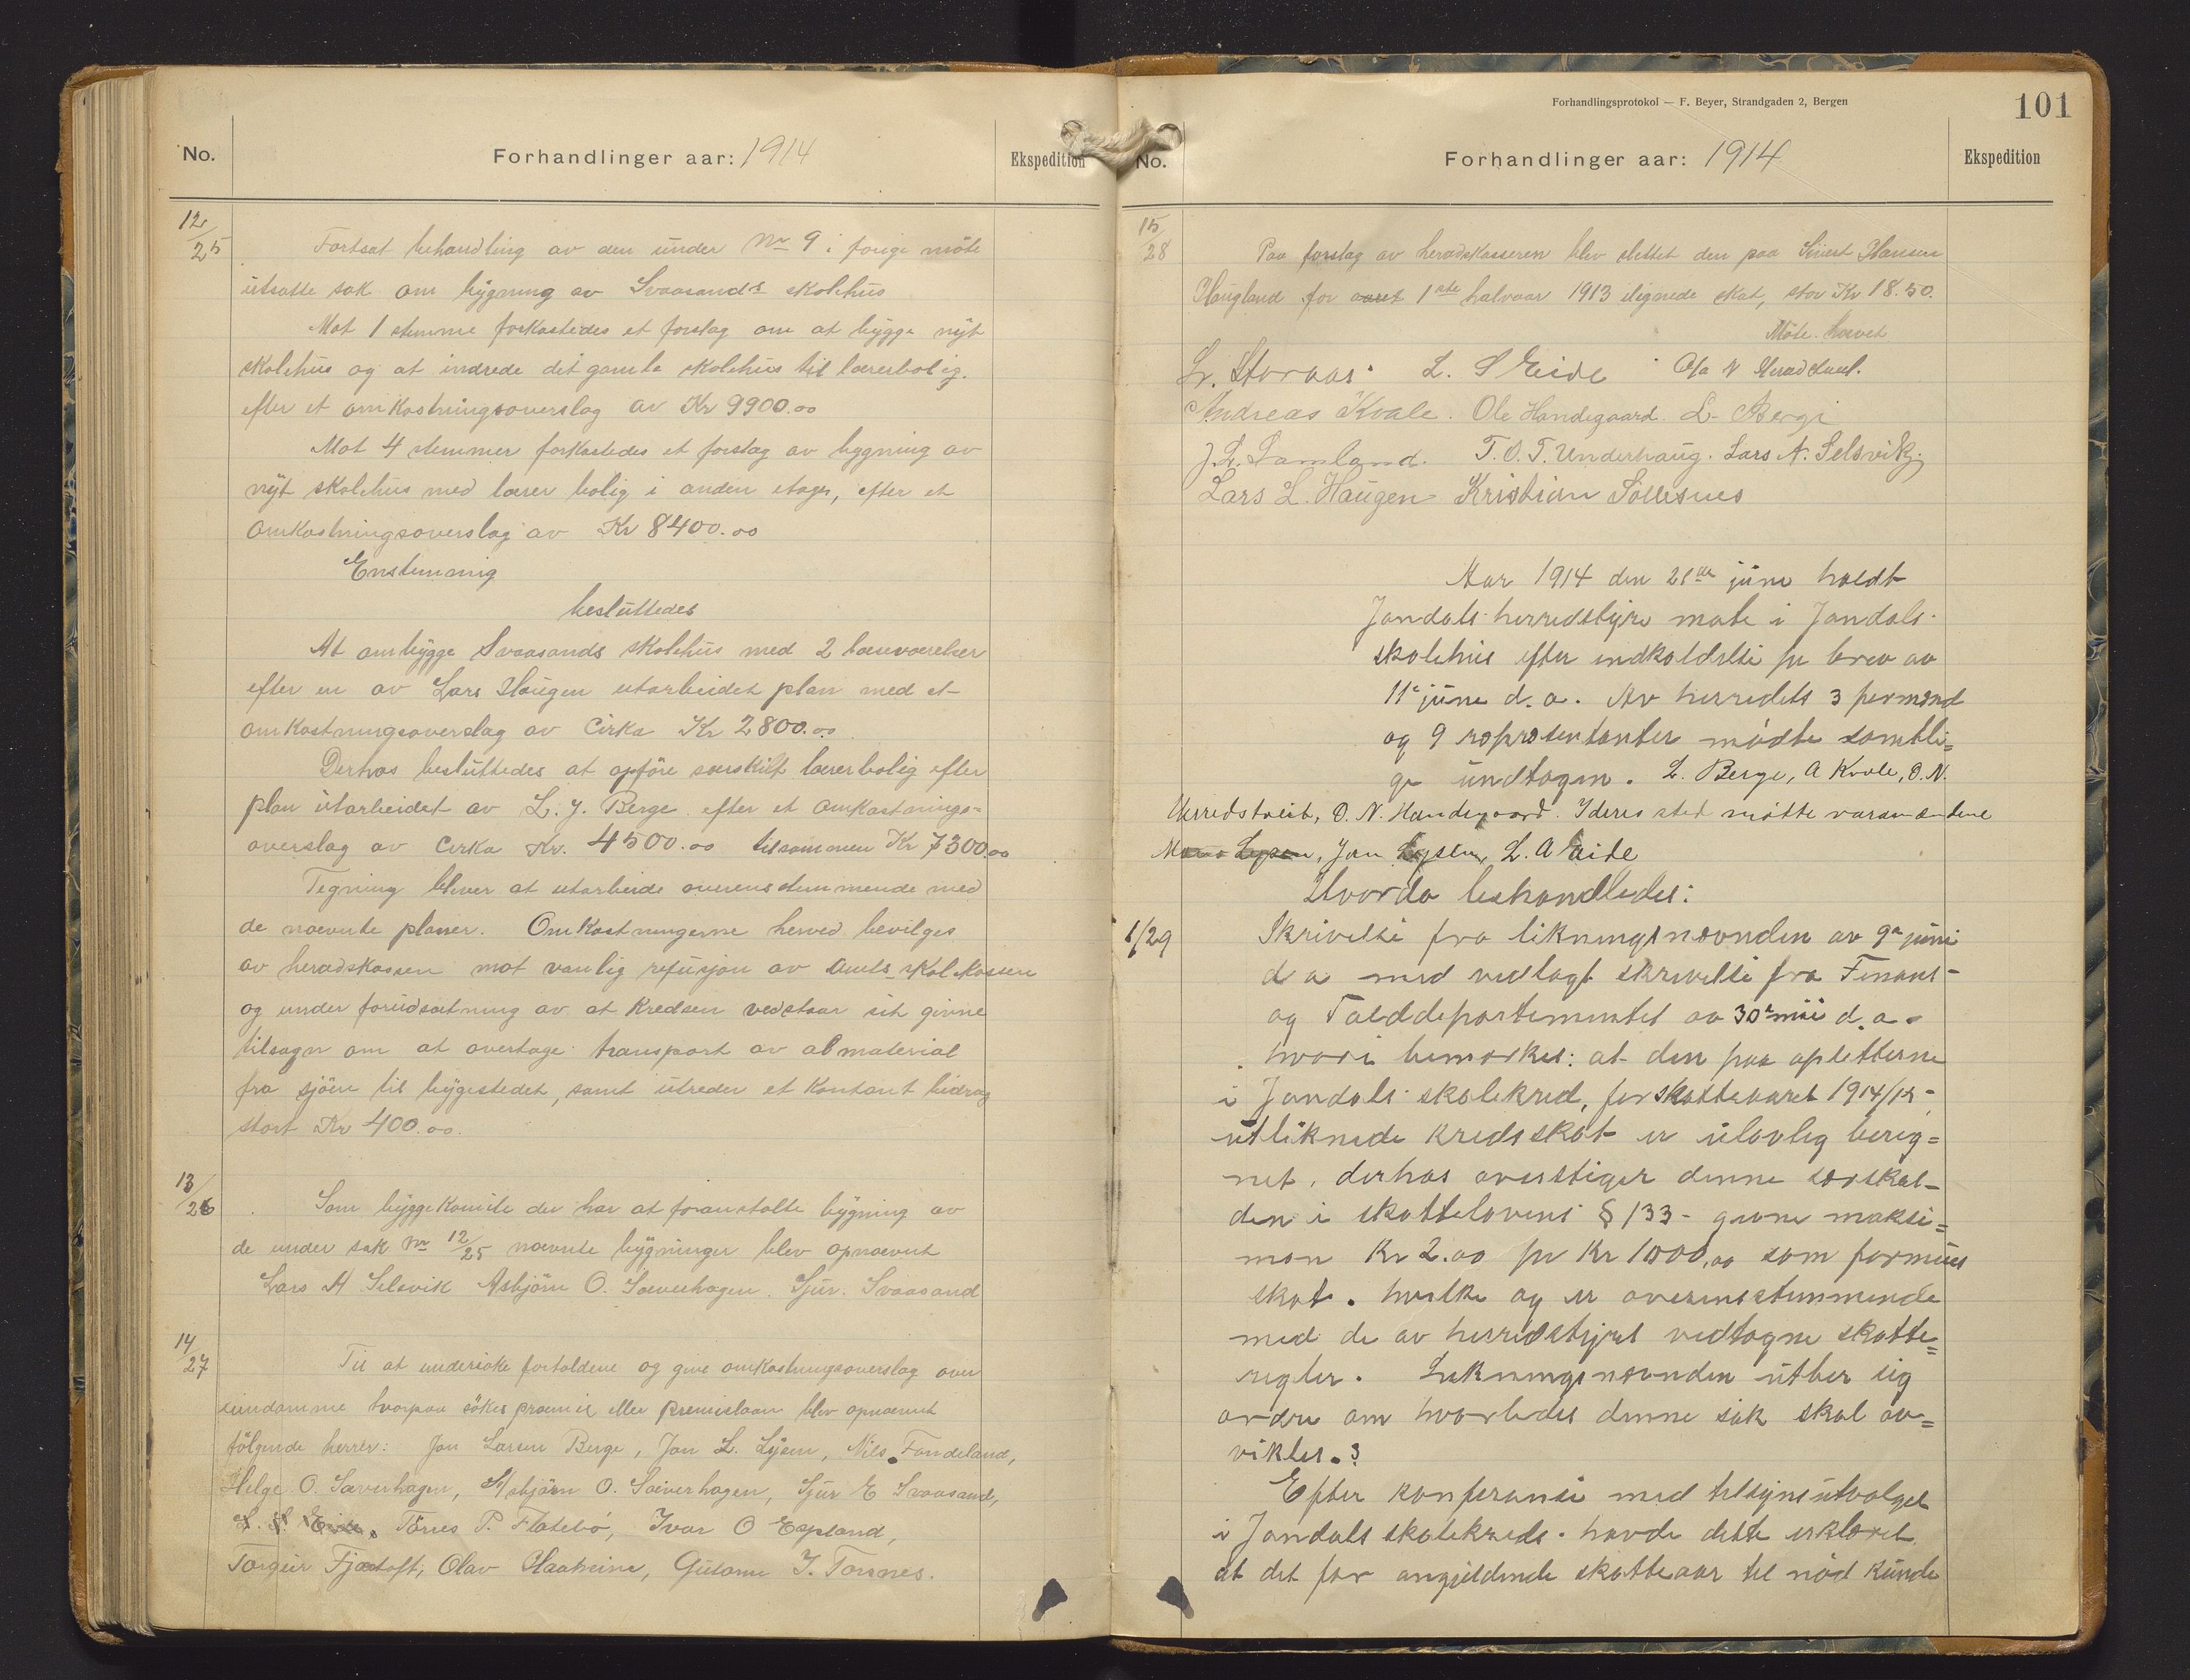 No.
Forhandlinger aar: 1914
Ekspedition
12/25
Fortsat behandling av den under Nr 9 i forige möte
utsatte sak om bygning av Svaasands skolehus
Mot 1 stemme forkastedes et forslag om at bygge nyt
skolehus og at indrede det gamle skolehus til lærerbolig.
efter et omkostningsoverslag av Kr 9900.00
Mot 4 stemmer forkastedes et forslag av bygning av
nyt skolehus med lærer bolig i anden etage, efter et
omkostningsoverslag av Kr 8400.00
Enstemmig
besluttedes
At ombygge Svaasands skolehus med 2 læseværelser
efter en av Lars Haugen utarbeidet plan med et
omkostningsoverslag av Cirka Kr 2800.00
Derhos besluttedes at opføre særskilt lærerbolig efter
plan utarbeidet av L. J. Berge efter et omkostnings=
overslag av Cirka Kr. 4500.00 tilsammen Kr 7300.00
Tegning blever at utarbeide overensstemmende med
de nævnte planer. Omkostningerne herved bevilges
av heradskassen mot vanlig refusjon av Amts-skolekassen
og under forudsætning av at Kredsen vedstaar sit givne
tilsagn om at overtage transport av alt material
fra sjöen til byggestedet, samt utreder et kontant bidrag
stort Kr 400.00.
13/26
Som byggekomite der har at foranstalte bygning av
de under sak Nr 12/25 nævnte bygninger blev opnævnt
Lars A Selsvik Asbjörn O. Sæverhagen. Sjur. Svaasand
14/27
Til at undersöke forholdene og give omkostningsoverslag over
eiendomme hvorpaa sökes præmie eller præmielaan blev opnævnt
fölgende herrer: Jon Larsen Berge, Jon L. Lysen, Nils Fondeland,
Helge O. Sæverhagen, Asbjörn O. Sæverhagen, Sjur E Svaasand,
L. S. Eide, Tórres P. Flatebó, Ivar O Espland,
Torgeir Fjætoft, Olav Haaheim, Gutorm J. Torsnes.
Forhandlingsprotokol — F. Beyer, Strandgaden 2, Bergen
101
No.
Forhandlinger aar: 1914
Ekspedition
15/28
Paa forslag av heradskasseren blev slettet den paa Sivert Hansen
Haugland for aaret 1ste halvaar 1913 ilignede skat, stor Kr 18.50.
Möte hævet
Lr. Storaas. L. S Eide Ola N Heradstveit.
Andreas Kvale. Ole Handegaard. L. Berge
J. L. Samland. T. O. T. Underhaug. Lars A. Selsvik.
Lars L. Haugen Kristian Sollesnes
Aar 1914 den 21de june holdt
Jondals herredstyre møte i Jondals
skolehus efter indkaldelse pr brev av
11te june d. a. Av herredets 3 formend
og 9 representanter mødte samtli=
ge undtagen. L. Berge, A Kvale, O. N.
Herredstveit, O. N. Handegaard. I deres sted møtte varamændene
Lysen, Jon Lysen, L. A Eide
Hvorda beshandledes:
1/29
Skrivelse fra likningsnevnden av 9de juni
d a med vedlagt skrivelse fra Finans-
og Tolddepartementet av 30te mai d. a.
hvori bemerkes: at den paa opsitterne
i Jondals skolekred, for skatteaaret 1914/15 -
utliknede kredsskat er ulovlig bereg=
net, derhos overstiger denne særskat-
den i skattelovens § 133 - givne maksi=
mon Kr 2.00 pr Kr 1000,00 som formues
skat. hvilke og er overensstemmende
med de av herredstyret vedtagne skatte=
regler. Likningsnevnden utber sig
ordre om hvorledes denne sak skal av=
vikles.?
Efter konferanse med tilsynsutvalget
i Jondals skolekreds. havde dette erkleret
at det for angjeldende skatteaar til nød kunde